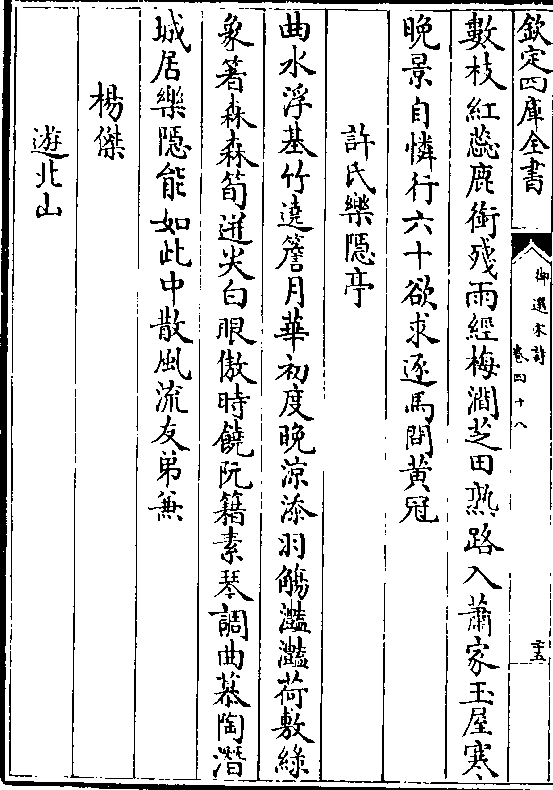 欽定四庫全書
御選宋詩
卷四十八
二十五
數枝紅蕊鹿銜殘雨經梅澗芝田熟路入蕭家玉屋寒
晚景自憐行六十欲求逐馬問黃冠
許氏樂隱亭
曲水浮基竹遶簷月華初度晚涼添羽觴灔灔荷敷綠
象箸森森筍迸尖白眼傲時饒阮籍素琴調曲慕陶潛
城居樂隱能如此中散風流友弟兼
楊傑
遊北山